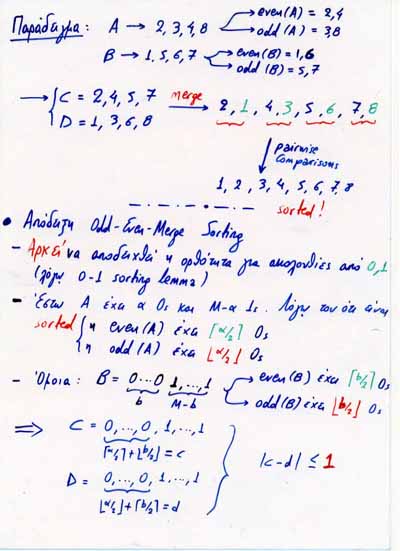 Παράδειγμα: A → 2, 3, 4, 8 → even(A) = 2, 4
→ odd(A) = 3, 8
B → 1, 5, 6, 7 → even(B) = 1, 6
→ odd(B) = 5, 7
→ { C = 2, 4, 5, 7 merge → 2, 1, 4, 3, 5, 6, 7, 8
D = 1, 3, 6, 8
↓ pairwise comparisons
1, 2, 3, 4, 5, 6, 7, 8
sorted!
• Απόδειξη Odd-Even-Merge Sorting
- Αρκεί να αποδειχθεί η ορθότητα για ακολουθίες από 0,1
(λόγω 0-1 sorting lemma)
- Έστω A έχει α 0s και M-α 1s. Λόγω του ότι είναι
sorted { η even(A) έχει ⌈α/2⌉ 0s
η odd(A) έχει ⌊α/2⌋ 0s
- Όμοια: B = 0...0 1,...,1 → even(B) έχει ⌈b/2⌉ 0s
b M-b → odd(B) έχει ⌊b/2⌋ 0s
⇒ C = 0,...,0, 1,...,1
⌈α/2⌉+⌊b/2⌋ = c
|c-d| ≤ 1
D = 0,...,0, 1,...,1
⌊α/2⌋+⌈b/2⌉ = d